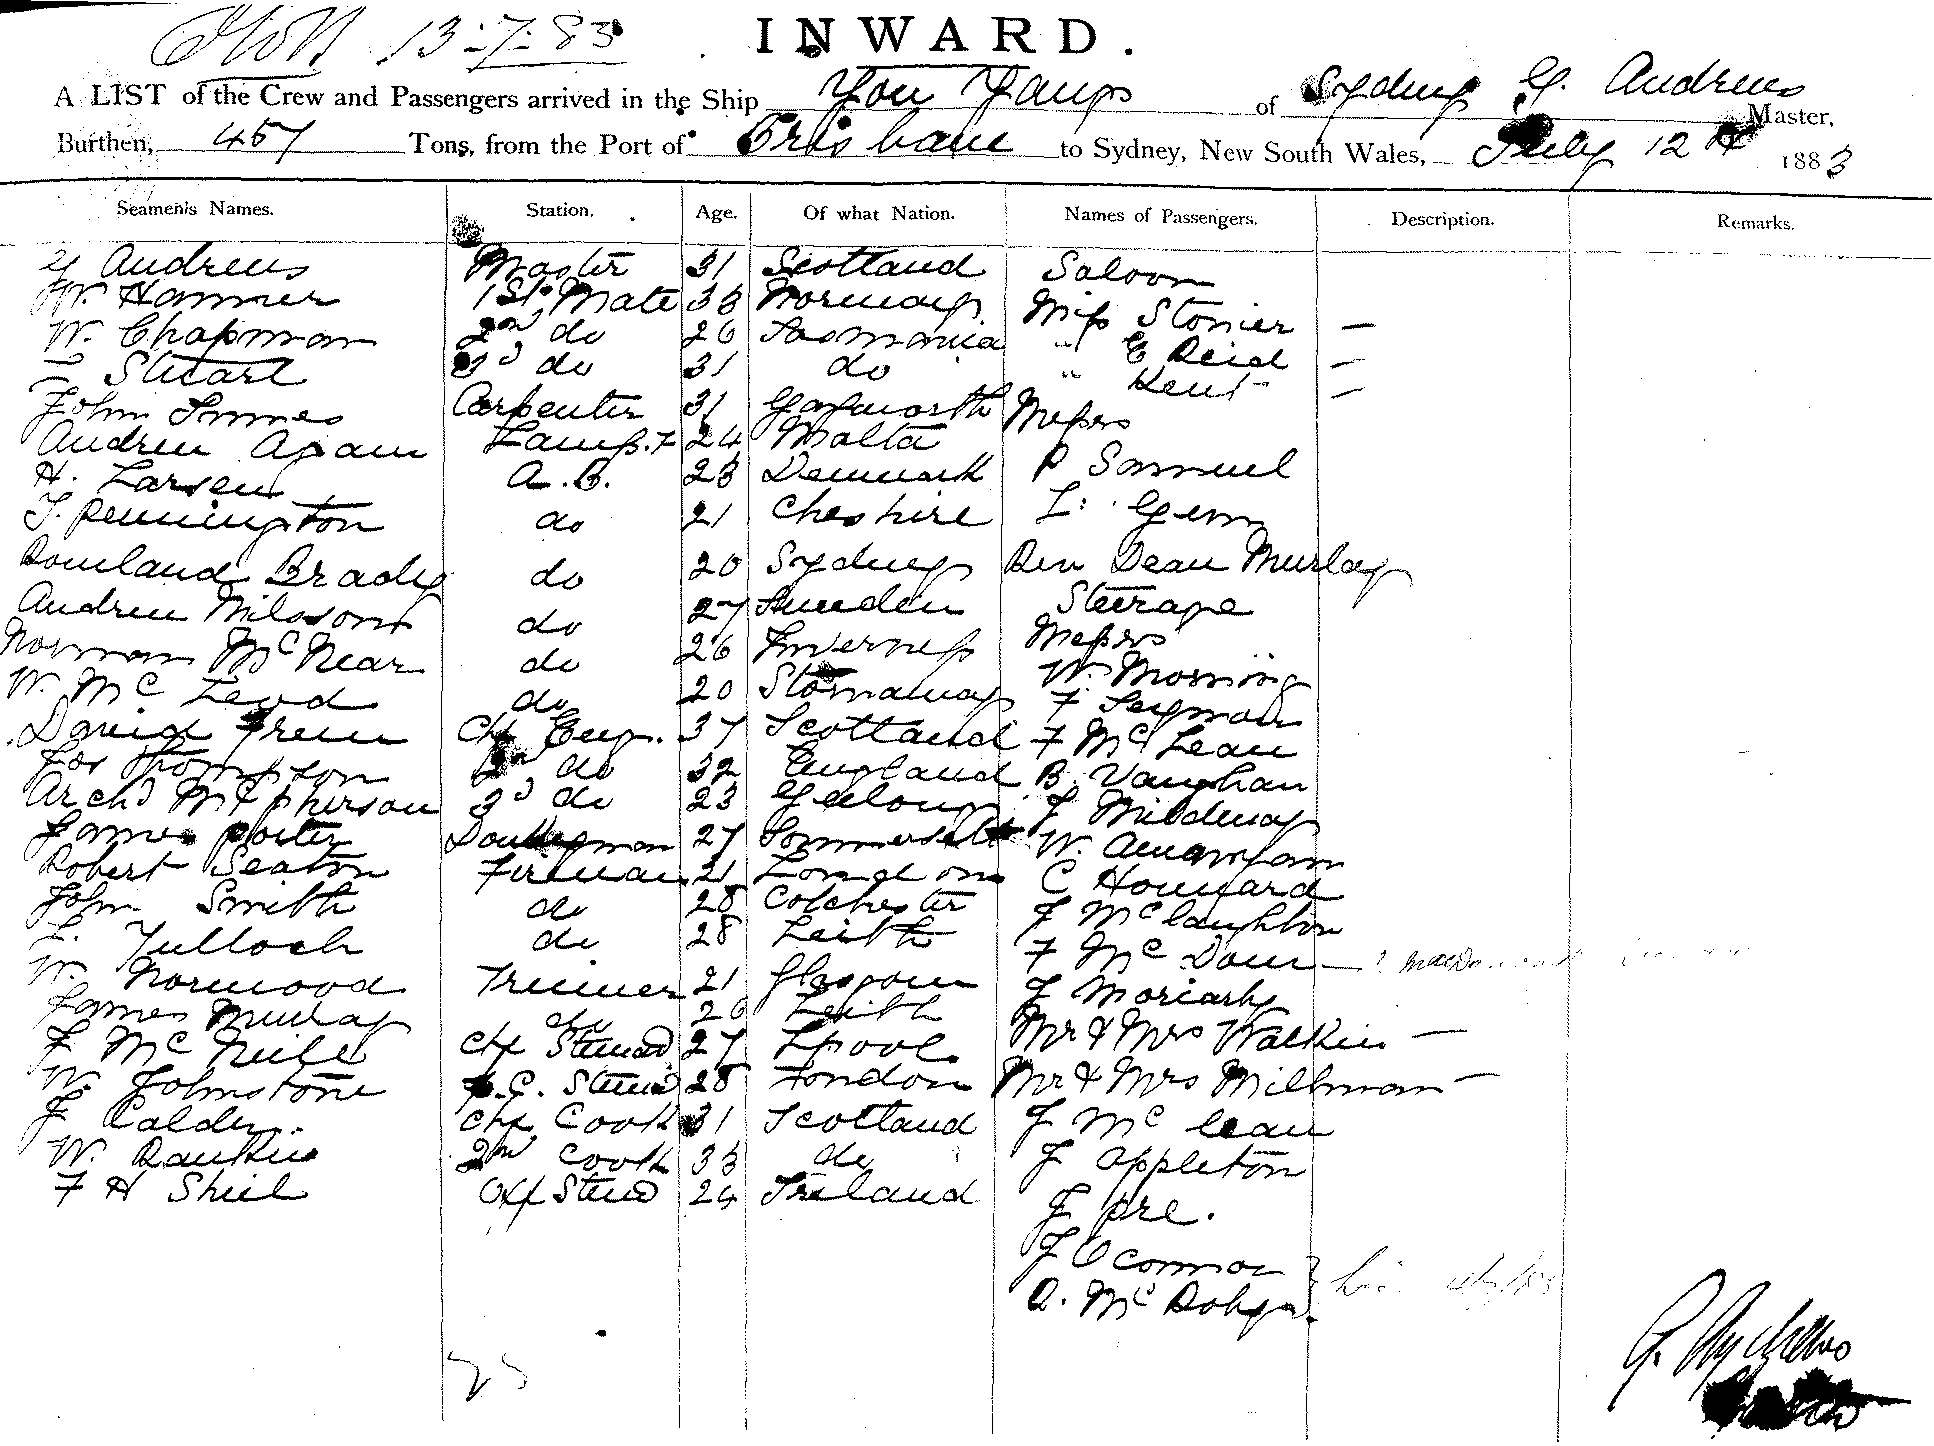 13-7-83
INWARD.
A LIST of the Crew and Passengers arrived in the Ship You Yangs of Sydney G. Andrews Master,
Burthen, 457 Tons, from the Port of Brisbane to Sydney, New South Wales, July 12th 1883
Seamen's Names. Station. Age. Of what Nation. Names of Passengers. Description. Remarks.
G Andrews Master 31 Scotland Saloon
W. Hammer 1st Mate 33 Norway Miss Stonier —
W. Chapman 2nd do 26 Tasmania " E Reid —
Stuart 3d do 31 do " Kent —
John Innes Carpenter 31 Messrs
Andrew Apam Lamp. T 24 Malta P Samuel
H. Larsen A.B. 23 Denmark L. Gem
T. Pennington do 21 Cheshire
Rowland Brady do 20 Sydney Rev Dean Murlay
Andrew Nilsson do 27 Sweden Steerage
Norman McNear do 26 Inverness Messrs
W. McLeod do 20 Stornaway W. Morning
David Green Chf Eng. 37 Scotland F Seymour
Jos Thompson 2nd do 32 England F McLean
Archd McPherson 3d do 23 Geelong B. Vaughan
James Porter Donkeyman 27 Sommersett J Mildway
Robert Seaton Fireman 21 London W.
John Smith do 28 Colchester C Howard
L. Tulloch do 28 Leith J McClaughlon
W. Norwood Trimmer 21 Glasgow F McDow —
James Murray do 26 Leith J Moriarty
J McNeill Chf Steward 27 Lpool Mr & Mrs Watkin —
W. Johnstone F.C. Stewd 28 London Mr & Mrs Millman —
J Calder Chf Cook 31 Scotland J McLean
W. Rankin 2nd Cook 33 do J Appleton
F H Shiel Off Stewd 24 Ireland J Pre.
J Oconnor
R. McRobyn
G. Andrews
Master